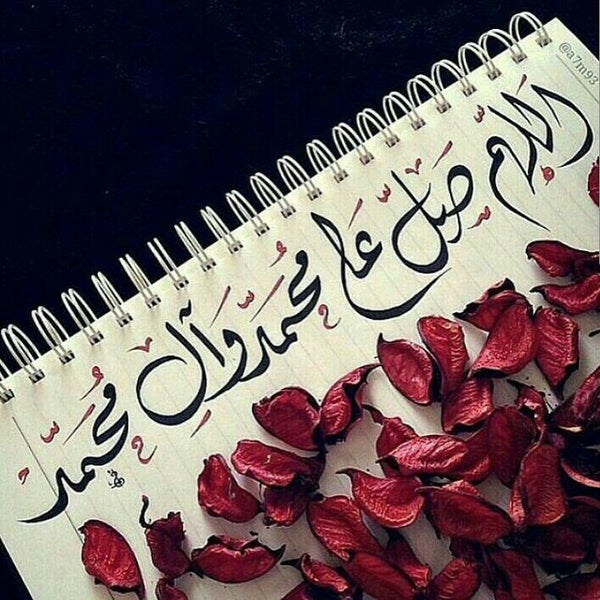 @a7m93
اللهم صل على محمد وآل محمد